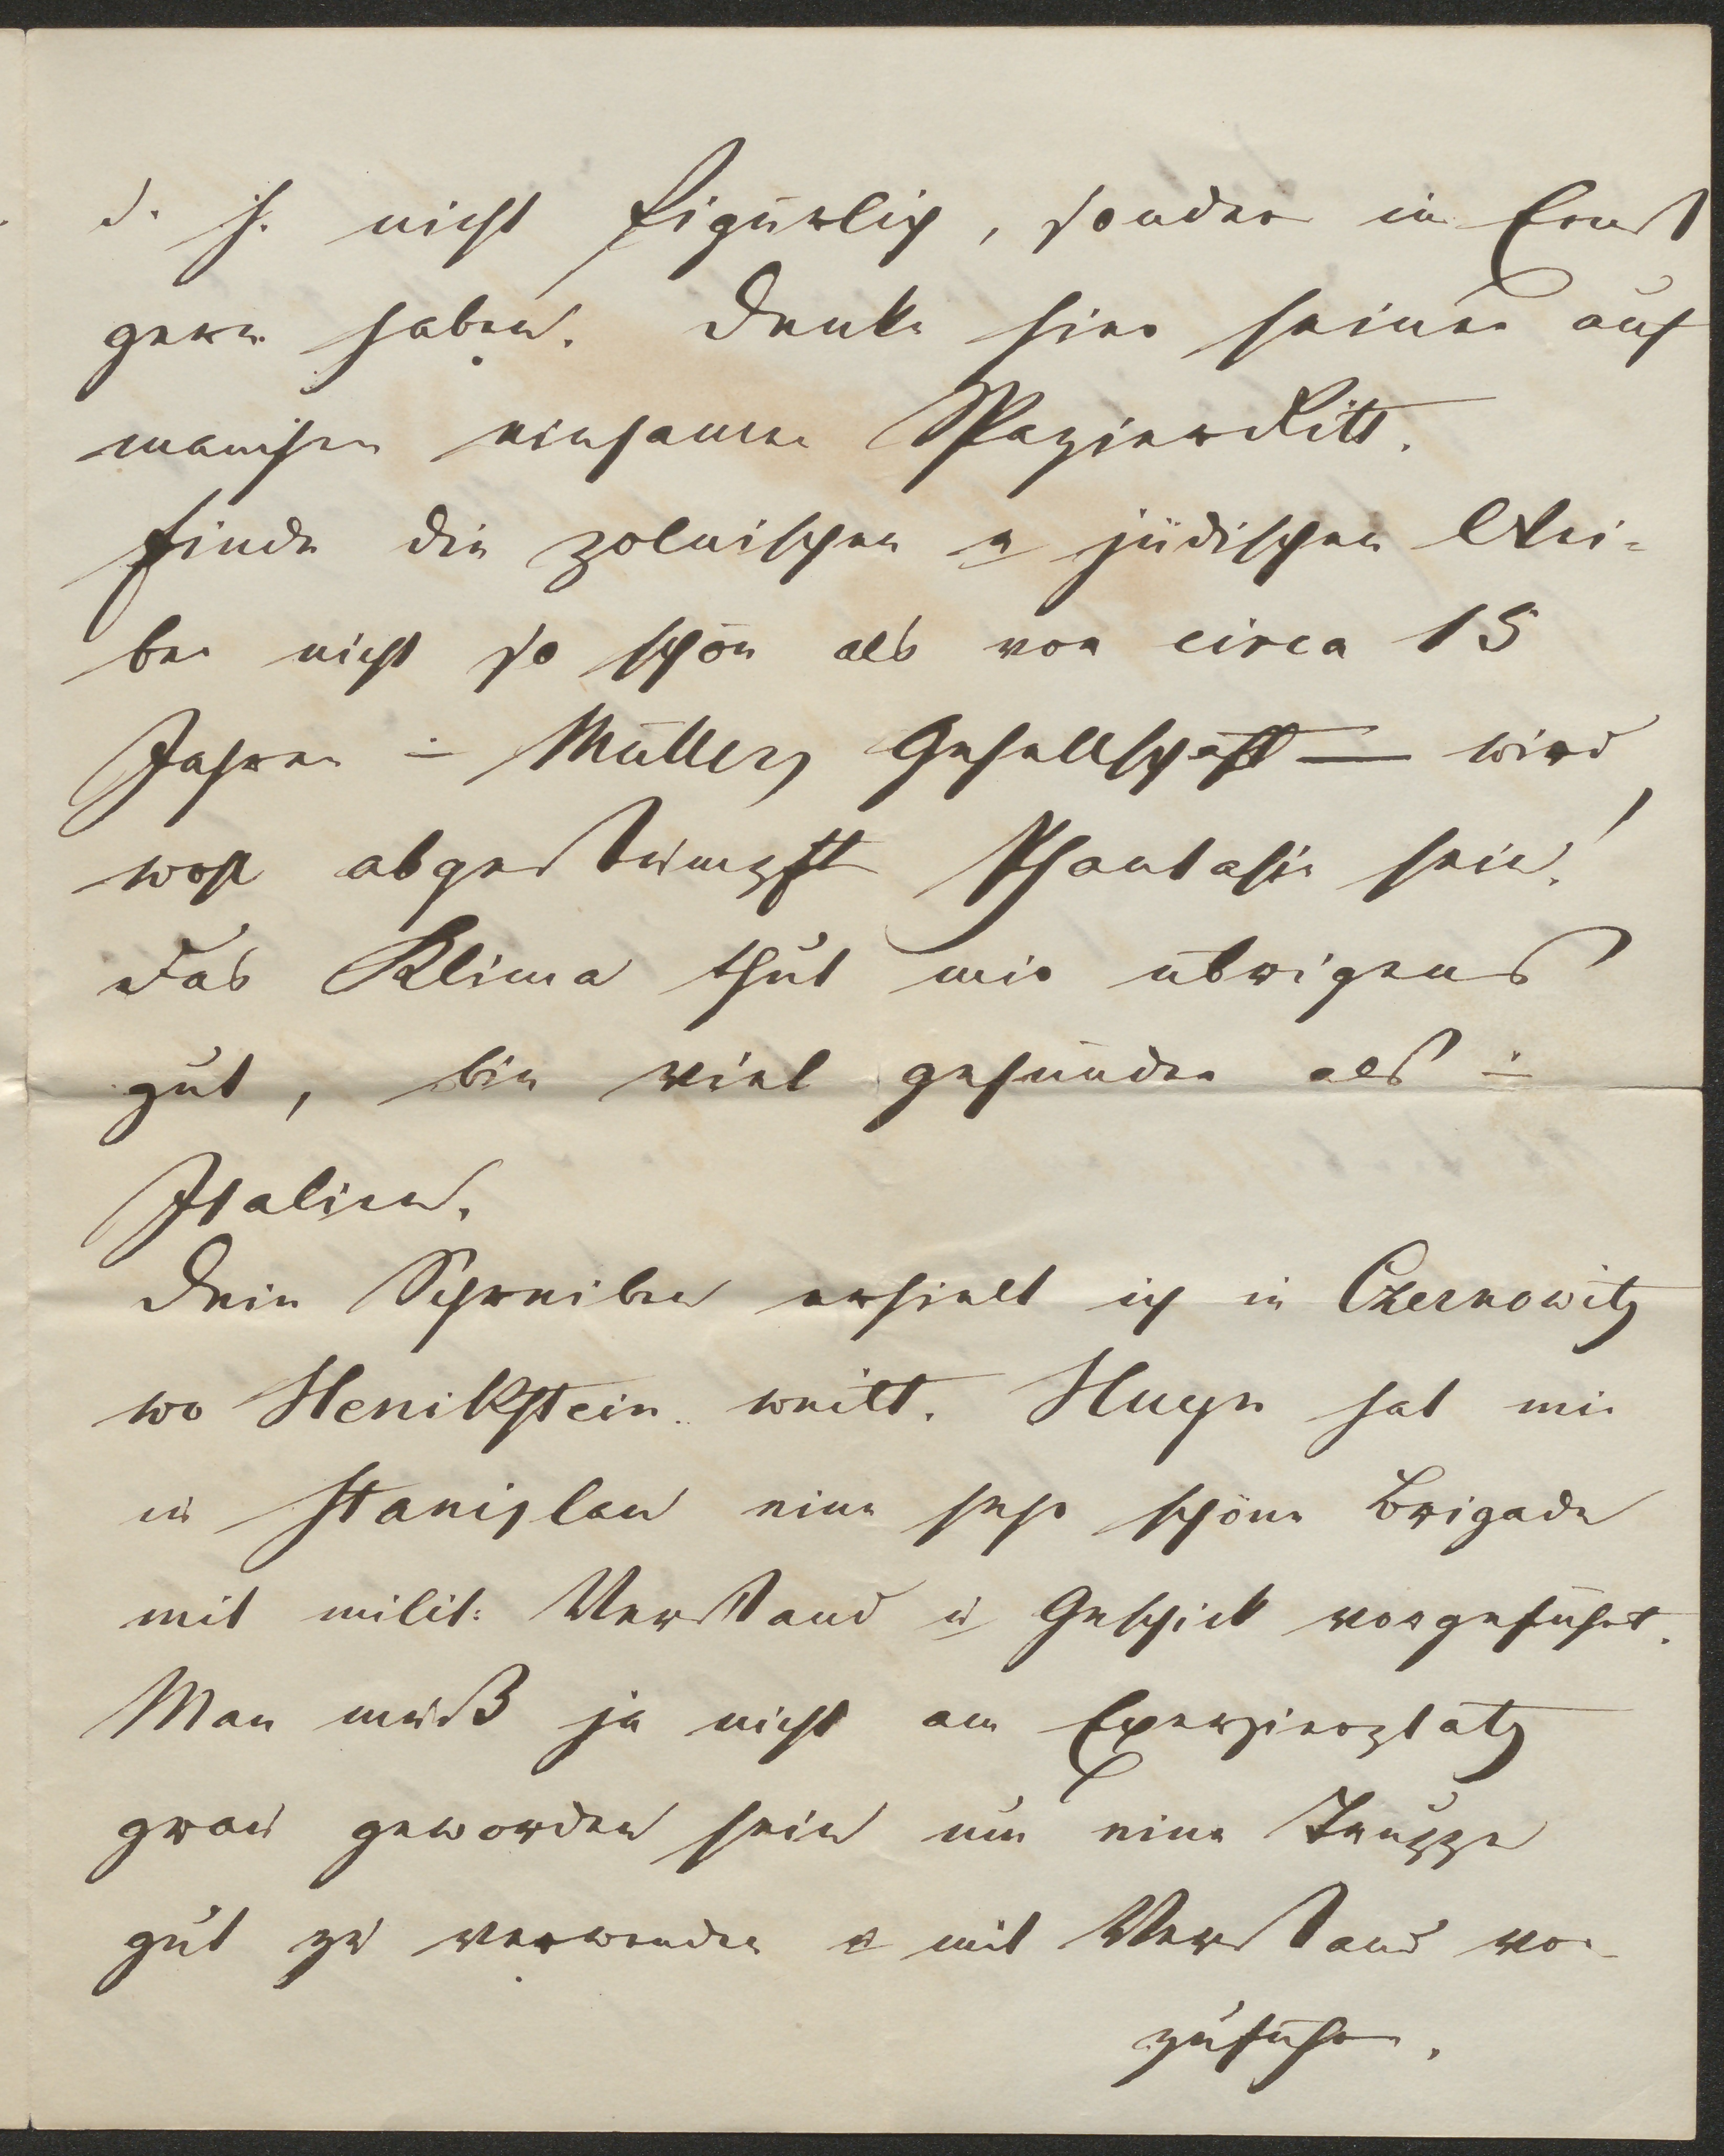 d. h. nicht figürlich, sondern im Ernst
gern haben. Denke hier seiner auf
manchen einsamen SpazierRitt.
Finde die polnischen u jüdischen Wei-
ber nicht so schön als vor circa 15
Jahren – Müllers Gesellschaft — wird
wohl abgestumpfte Phantasie sein!
Das Klima thut mir übrigens
gut, bin viel gesünder als in
Italien.
Dein Schreiben erhielt ich in Czernowitz
wo Henikstein weilt. Huyn hat mir
in Stanislau eine sehr schöne Brigade
mit milit: Verstand u Geschick vorgeführt.
Man muß ja nicht am Exerzierplatz
grau geworden sein um eine Truppe
gut zu verwenden u mit Verstand vor-
zuführen.